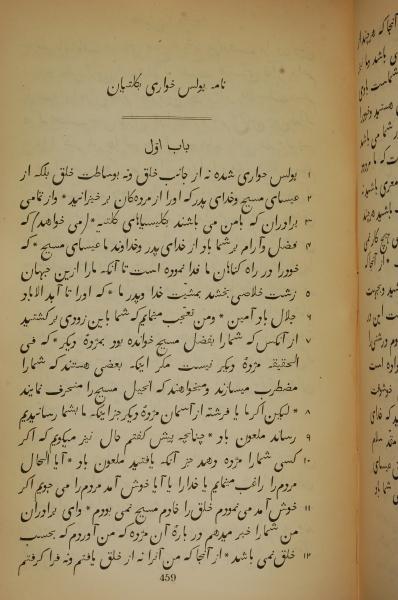 نامه پولس حواری بکلتیان
باب اوّل
۱ پولس حواری شده نه از جانب خلق ونه بوساطت خلق بلکه از
۲ عیسای مسیح وخدای پدر که اورا از مردهکان بر خیزانید * واز تمامی
۳ برادران که بامن می باشند بکلیسیاهای کلتیه * (می خواهد) که
۴ فضل وآرام بر شما باد از خدای پدر وخداوند ما عیسای مسیح * که
خودرا در راه کناهان ما فدا نموده است تا آنکه مارا ازین جهان
۵ زشت خلاصی بخشد بمشیّت خدا وپدر ما * که اورا تا ابد الاباد
۶ جلال باد آمین * ومن تعجب مینمایم که شما باین زودی برکشتید
۷ از آنکس که شمارا بفضل مسیح خوانده بود بمژدهٔ دیکر * که فی
الحقیقه مژدهٔ دیکر نیست مکر اینکه بعضی هستند که شمارا
مضطرب میسازند ومیخواهند که انجیل مسیحرا منحرف نمایند
۸ * لیکن اکر ما یا فرشتهٔ از آسمان مژدهٔ دیکر جز اینکه ما بشما رسانیدیم
۹ رساند ملعون باد * چنانچه پیش کفتم حال نیز میکویم که اکر
۱۰ کسی شمارا مژده دهد جز آنکه یافتید ملعون باد * آیا الحال
مردمرا راغب مینمایم یا خدارا یا آیا خوش آمد مردمرا می جویم اکر
۱۱ خوش آمد می نمودم خلق را خادم مسیح نمی بودم * وای برادران
من شمارا خبر میدهم در بارهٔ آن مژده که من آوردم که بحسب
۱۲ خلق نمی باشد * از آنجا که من آنرا نه از خلق یافتم ونه فرا کرفتم
459